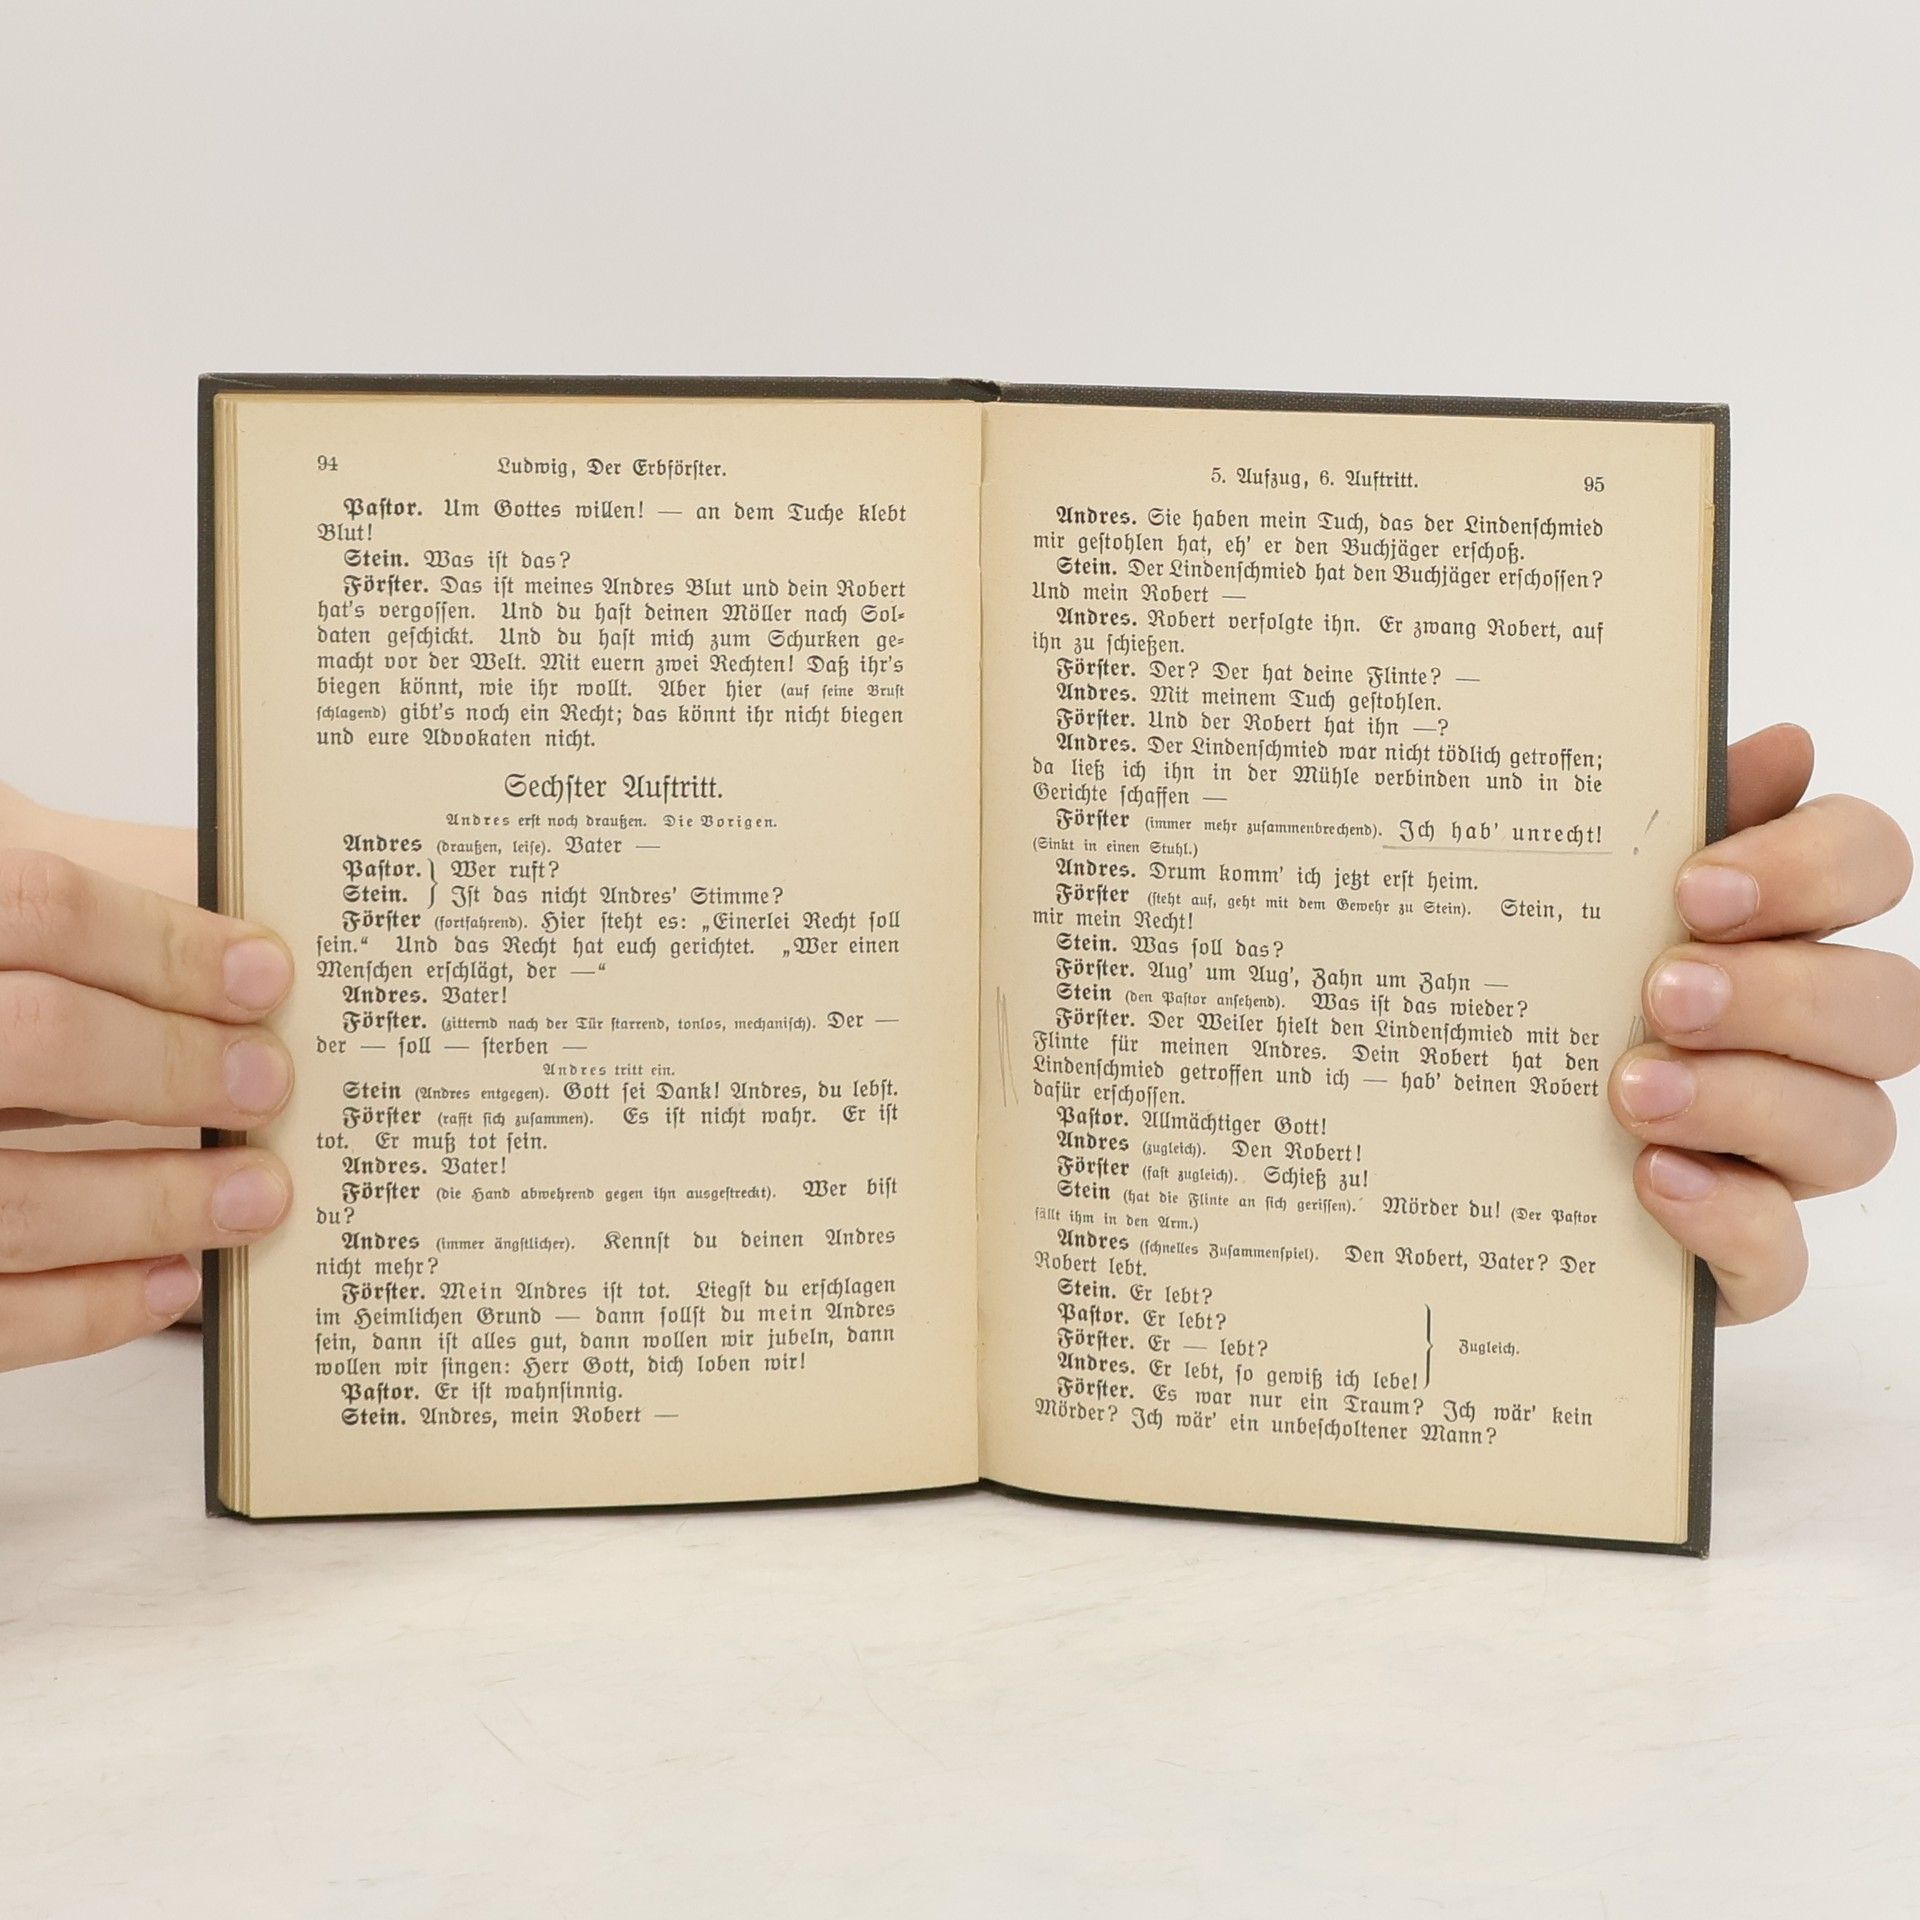 94
Ludwig, Der Erbförſter.
Paſtor. Um Gottes willen! — an dem Tuche klebt
Blut!
Stein. Was iſt das?
Förſter. Das iſt meines Andres Blut und dein Robert
hat's vergoſſen. Und du haſt deinen Möller nach Sol⸗
daten geſchickt. Und du haſt mich zum Schurken ge⸗
macht vor der Welt. Mit euern zwei Rechten! Daß ihr's
biegen könnt, wie ihr wollt. Aber hier (auf ſeine Bruſt
ſchlagend) gibt's noch ein Recht; das könnt ihr nicht biegen
und eure Advokaten nicht.
Sechſter Auftritt.
Andres erſt noch draußen. Die Vorigen.
Andres (draußen, leiſe). Vater —
Paſtor. } Wer ruft?
Stein. } Iſt das nicht Andres' Stimme?
Förſter (fortfahrend). Hier ſteht es: „Einerlei Recht ſoll
ſein.“ Und das Recht hat euch gerichtet. „Wer einen
Menſchen erſchlägt, der —“
Andres. Vater!
Förſter. (zitternd nach der Tür ſtarrend, tonlos, mechaniſch). Der —
der — ſoll — ſterben —
Andres tritt ein.
Stein (Andres entgegen). Gott ſei Dank! Andres, du lebſt.
Förſter (rafft ſich zuſammen). Es iſt nicht wahr. Er iſt
tot. Er muß tot ſein.
Andres. Vater!
Förſter (die Hand abwehrend gegen ihn ausgeſtreckt). Wer biſt
du?
Andres (immer ängſtlicher). Kennſt du deinen Andres
nicht mehr?
Förſter. Mein Andres iſt tot. Liegſt du erſchlagen
im Heimlichen Grund — dann ſollſt du mein Andres
ſein, dann iſt alles gut, dann wollen wir jubeln, dann
wollen wir ſingen: Herr Gott, dich loben wir!
Paſtor. Er iſt wahnſinnig.
Stein. Andres, mein Robert —
5. Aufzug, 6. Auftritt.
95
Andres. Sie haben mein Tuch, das der Lindenſchmied
mir geſtohlen hat, eh' er den Buchjäger erſchoß.
Stein. Der Lindenſchmied hat den Buchjäger erſchoſſen?
Und mein Robert —
Andres. Robert verfolgte ihn. Er zwang Robert, auf
ihn zu ſchießen.
Förſter. Der? Der hat deine Flinte? —
Andres. Mit meinem Tuch geſtohlen.
Förſter. Und der Robert hat ihn —?
Andres. Der Lindenſchmied war nicht tödlich getroffen;
da ließ ich ihn in der Mühle verbinden und in die
Gerichte ſchaffen —
Förſter (immer mehr zuſammenbrechend). Ich hab' unrecht! !
(Sinkt in einen Stuhl.)
Andres. Drum komm' ich jetzt erſt heim.
Förſter (ſteht auf, geht mit dem Gewehr zu Stein). Stein, tu
mir mein Recht!
Stein. Was ſoll das?
Förſter. Aug' um Aug', Zahn um Zahn —
Stein (den Paſtor anſehend). Was iſt das wieder?
Förſter. Der Weiler hielt den Lindenſchmied mit der
Flinte für meinen Andres. Dein Robert hat den
Lindenſchmied getroffen und ich — hab' deinen Robert
dafür erſchoſſen.
Paſtor. Allmächtiger Gott!
Andres (zugleich). Den Robert!
Förſter (faſt zugleich). Schieß zu!
Stein (hat die Flinte an ſich geriſſen). Mörder du! (Der Paſtor
fällt ihm in den Arm.)
Andres (ſchnelles Zuſammenſpiel). Den Robert, Vater? Der
Robert lebt.
Stein. Er lebt?
Paſtor. Er lebt?
Förſter. Er — lebt? } Zugleich.
Andres. Er lebt, ſo gewiß ich lebe!
Förſter. Es war nur ein Traum? Ich wär' kein
Mörder? Ich wär' ein unbeſcholtener Mann?